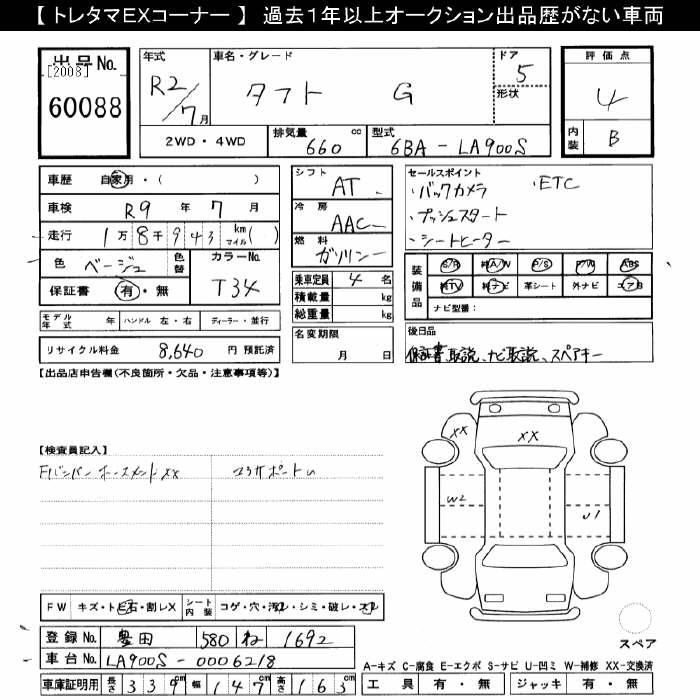 【 トレタマEXコーナー 】 過去1年以上オークション出品歴がない車両
出品No.
[2008]
60088
年式
R2/7月
車名・グレード
タフト G
ドア
5
形状
評価点
4
内装 B
2WD・4WD
排気量 660 cc
型式 6BA-LA900S
車歴 自家用・( )
車検 R9年 7月
走行 1万8千943 km マイル( )
色 ベージュ 色替
カラーNo.
T34
保証書 有・無
シフト AT
冷房 AAC
燃料 ガソリン
乗車定員 4名
積載量 kg
総重量 kg
セールスポイント
・バックカメラ ・ETC
・プッシュスタート
・シートヒーター
装備品
S/R 純A/W P/S P/W ABS
純TV 純ナビ 革シート 外ナビ エアB
ナビ型番:
モデル年式 年 ハンドル 左・右 ディーラー・並行
リサイクル料金 8,640 円 預託済
名変期限
月 日
後日品
保証書、取説、ナビ取説、スペアキー
【出品店申告欄(不良箇所・欠品・注意事項等)】
【検査員記入】
Fバンパー ホースメントXX コアサポートU
XX
XX
W2
U1
FW キズ・トビ石・割レX
シート内装 コゲ・穴・汚レ・シミ・破レ・スレ
スペア
登録No. 豊田 580 ね 1692
車台No. LA900S-0006218
A-キズ C-腐食 E-エクボ S-サビ U-凹ミ W-補修 XX-交換済
車庫証明用 長さ 339cm 幅 147cm 高さ 163cm
工具 有・無 ジャッキ 有・無